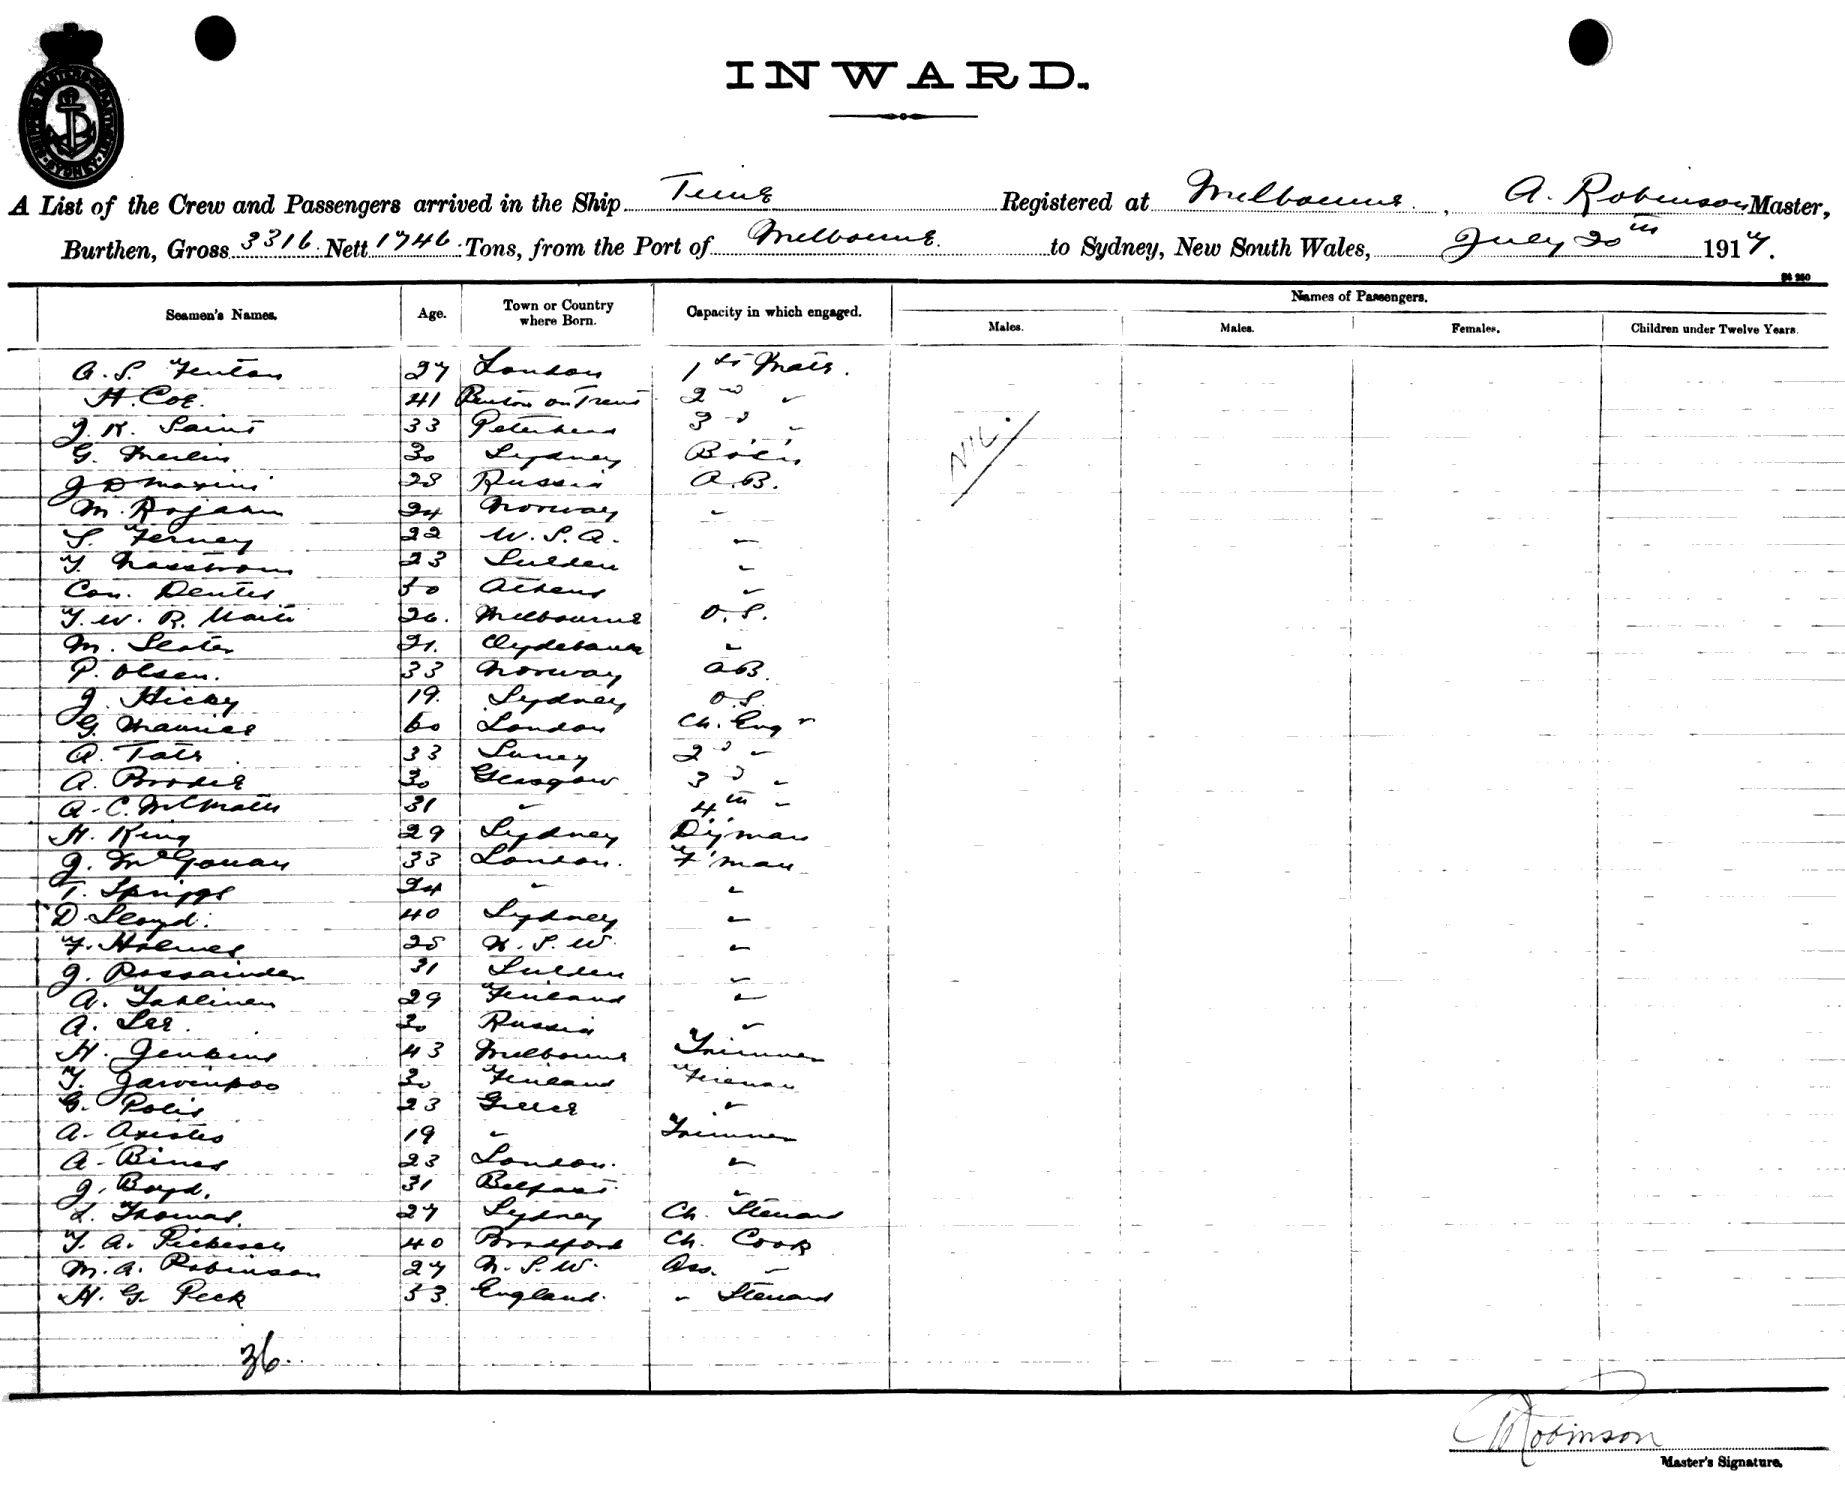 INWARD.
A List of the Crew and Passengers arrived in the Ship Registered at Melbourne, A. Robinson Master,
Burthen, Gross 3316 Nett 1746 Tons, from the Port of Melbourne to Sydney, New South Wales, July 20th 1917.
Seamen's Names. Age. Town or Country where Born. Capacity in which engaged. Names of Passengers.
Males. Males. Females. Children under Twelve Years.
A. S. Fenton 27 London 1st Mate.
H. Coe. 41 on Trent 2nd "
J. K. Saint 33 Peterhead 3rd "
G. Merlin 30 Sydney Bo's'n
Nil.
28 Russia A.B.
M. 24 Norway "
S. Ferney 22 U.S.A. "
23 Sweden "
Con. 50 Athens "
26. Melbourne O.S.
M. Slater 21. Clydebank "
P. Olsen. 33 Norway A.B.
J. Hicky 19. Sydney O.S.
G. Maurice 60 London Ch. Eng r
A. Tate 33 2nd "
A. Brodie 30 Glasgow 3rd "
A. C. 31 " 4th "
H. King 29 Sydney D'yman
J. McGowan 33 London. F'man
T. Spriggs 24 " "
D. Lloyd. 40 Sydney "
F. Holmes 25 N.S.W. "
J. 31 Sweden "
A. 29 Finland "
A. Lee. 30 Russia "
H. Jenkins 43 Melbourne Trimmer
30 Finland Fireman
G. Polis 23 Greece "
A. 19 " Trimmer
A. Bines 23 London. "
J. Boyd. 31 Belfast "
L. Thomas. 27 Sydney Ch. Steward
40 Bradford Ch. Cook
M. A. Robinson 27 N.S.W. Ass. "
H. G. Peck 33. England. " Steward
36.
Robinson
Master's Signature.